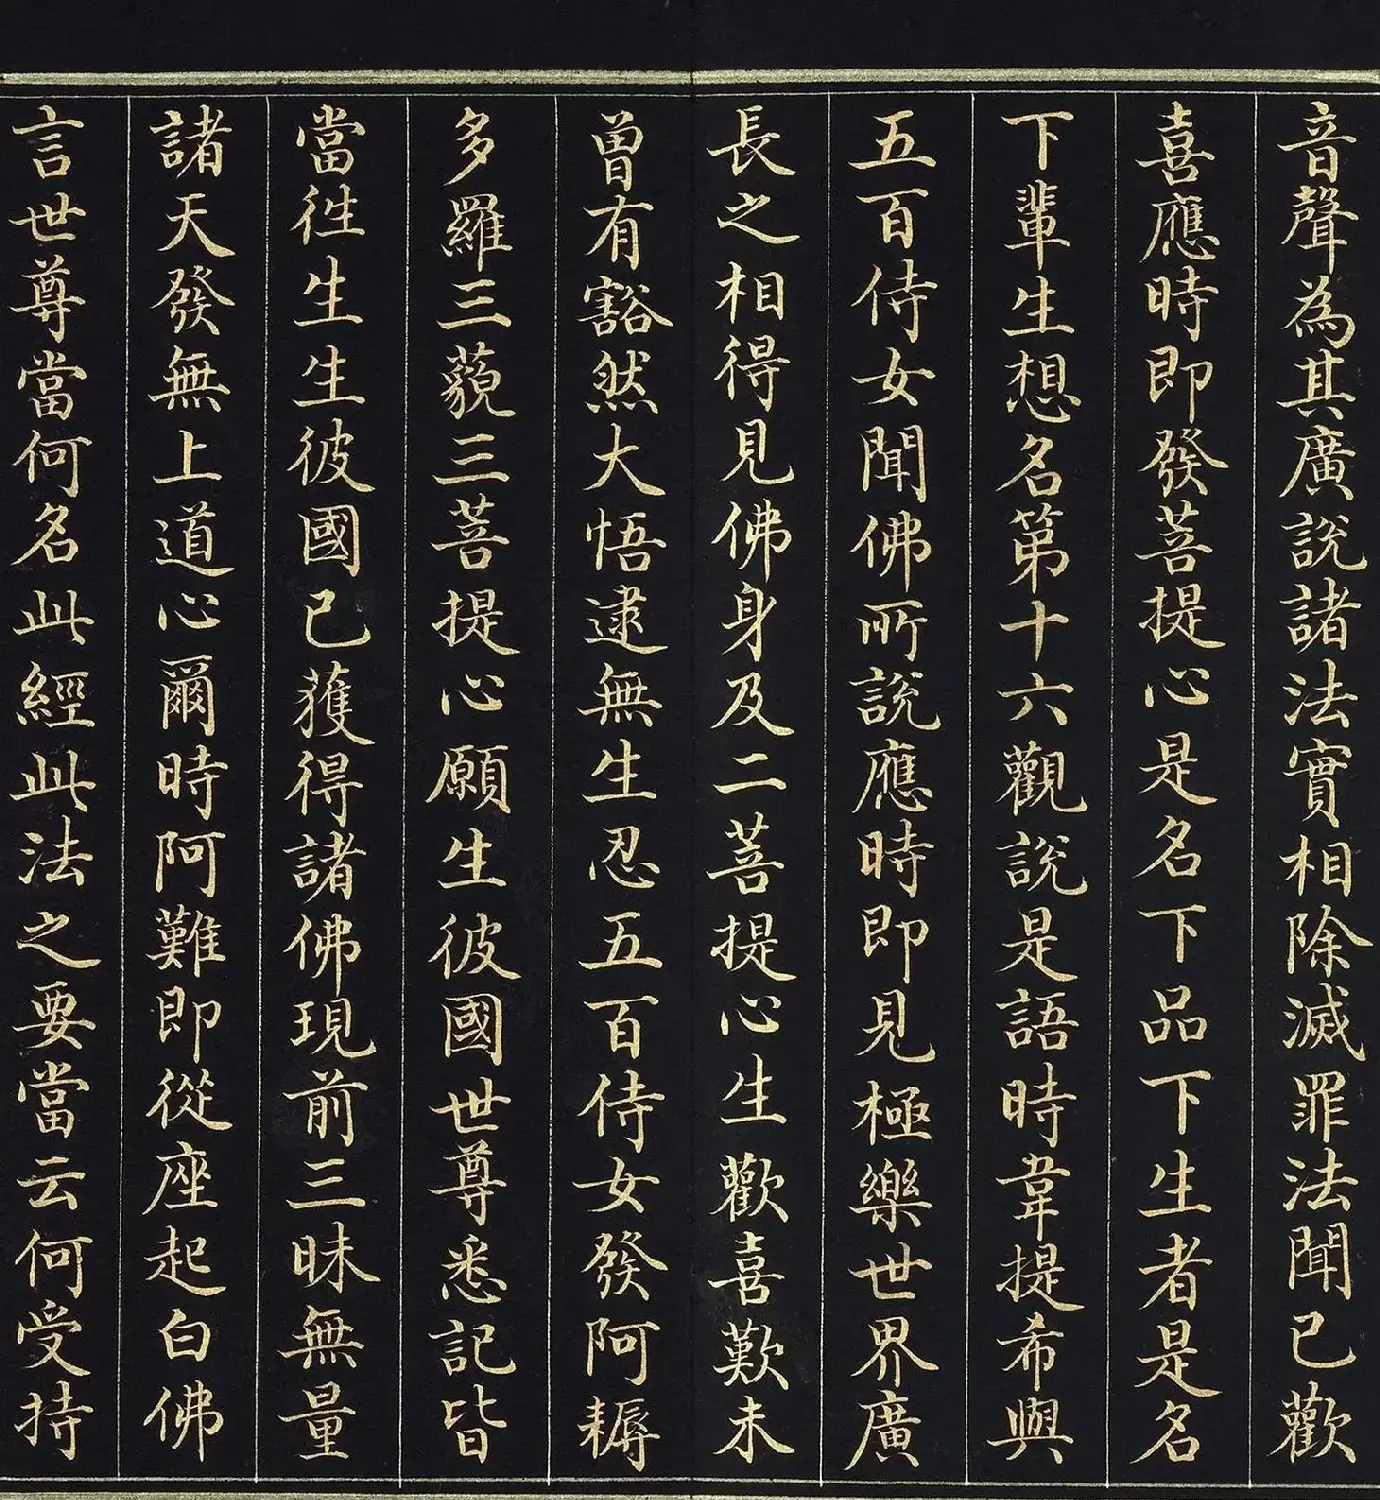 音聲為其廣說諸法實相除滅罪法聞已歡
喜應時即發菩提心是名下品下生者是名
下輩生想名第十六觀說是語時韋提希與
五百侍女聞佛所說應時即見極樂世界廣
長之相得見佛身及二菩提心生歡喜歎未
曾有豁然大悟逮無生忍五百侍女發阿耨
多羅三藐三菩提心願生彼國世尊悉記皆
當徃生生彼國已獲得諸佛現前三昧無量
諸天發無上道心爾時阿難即從座起白佛
言世尊當何名此經此法之要當云何受持